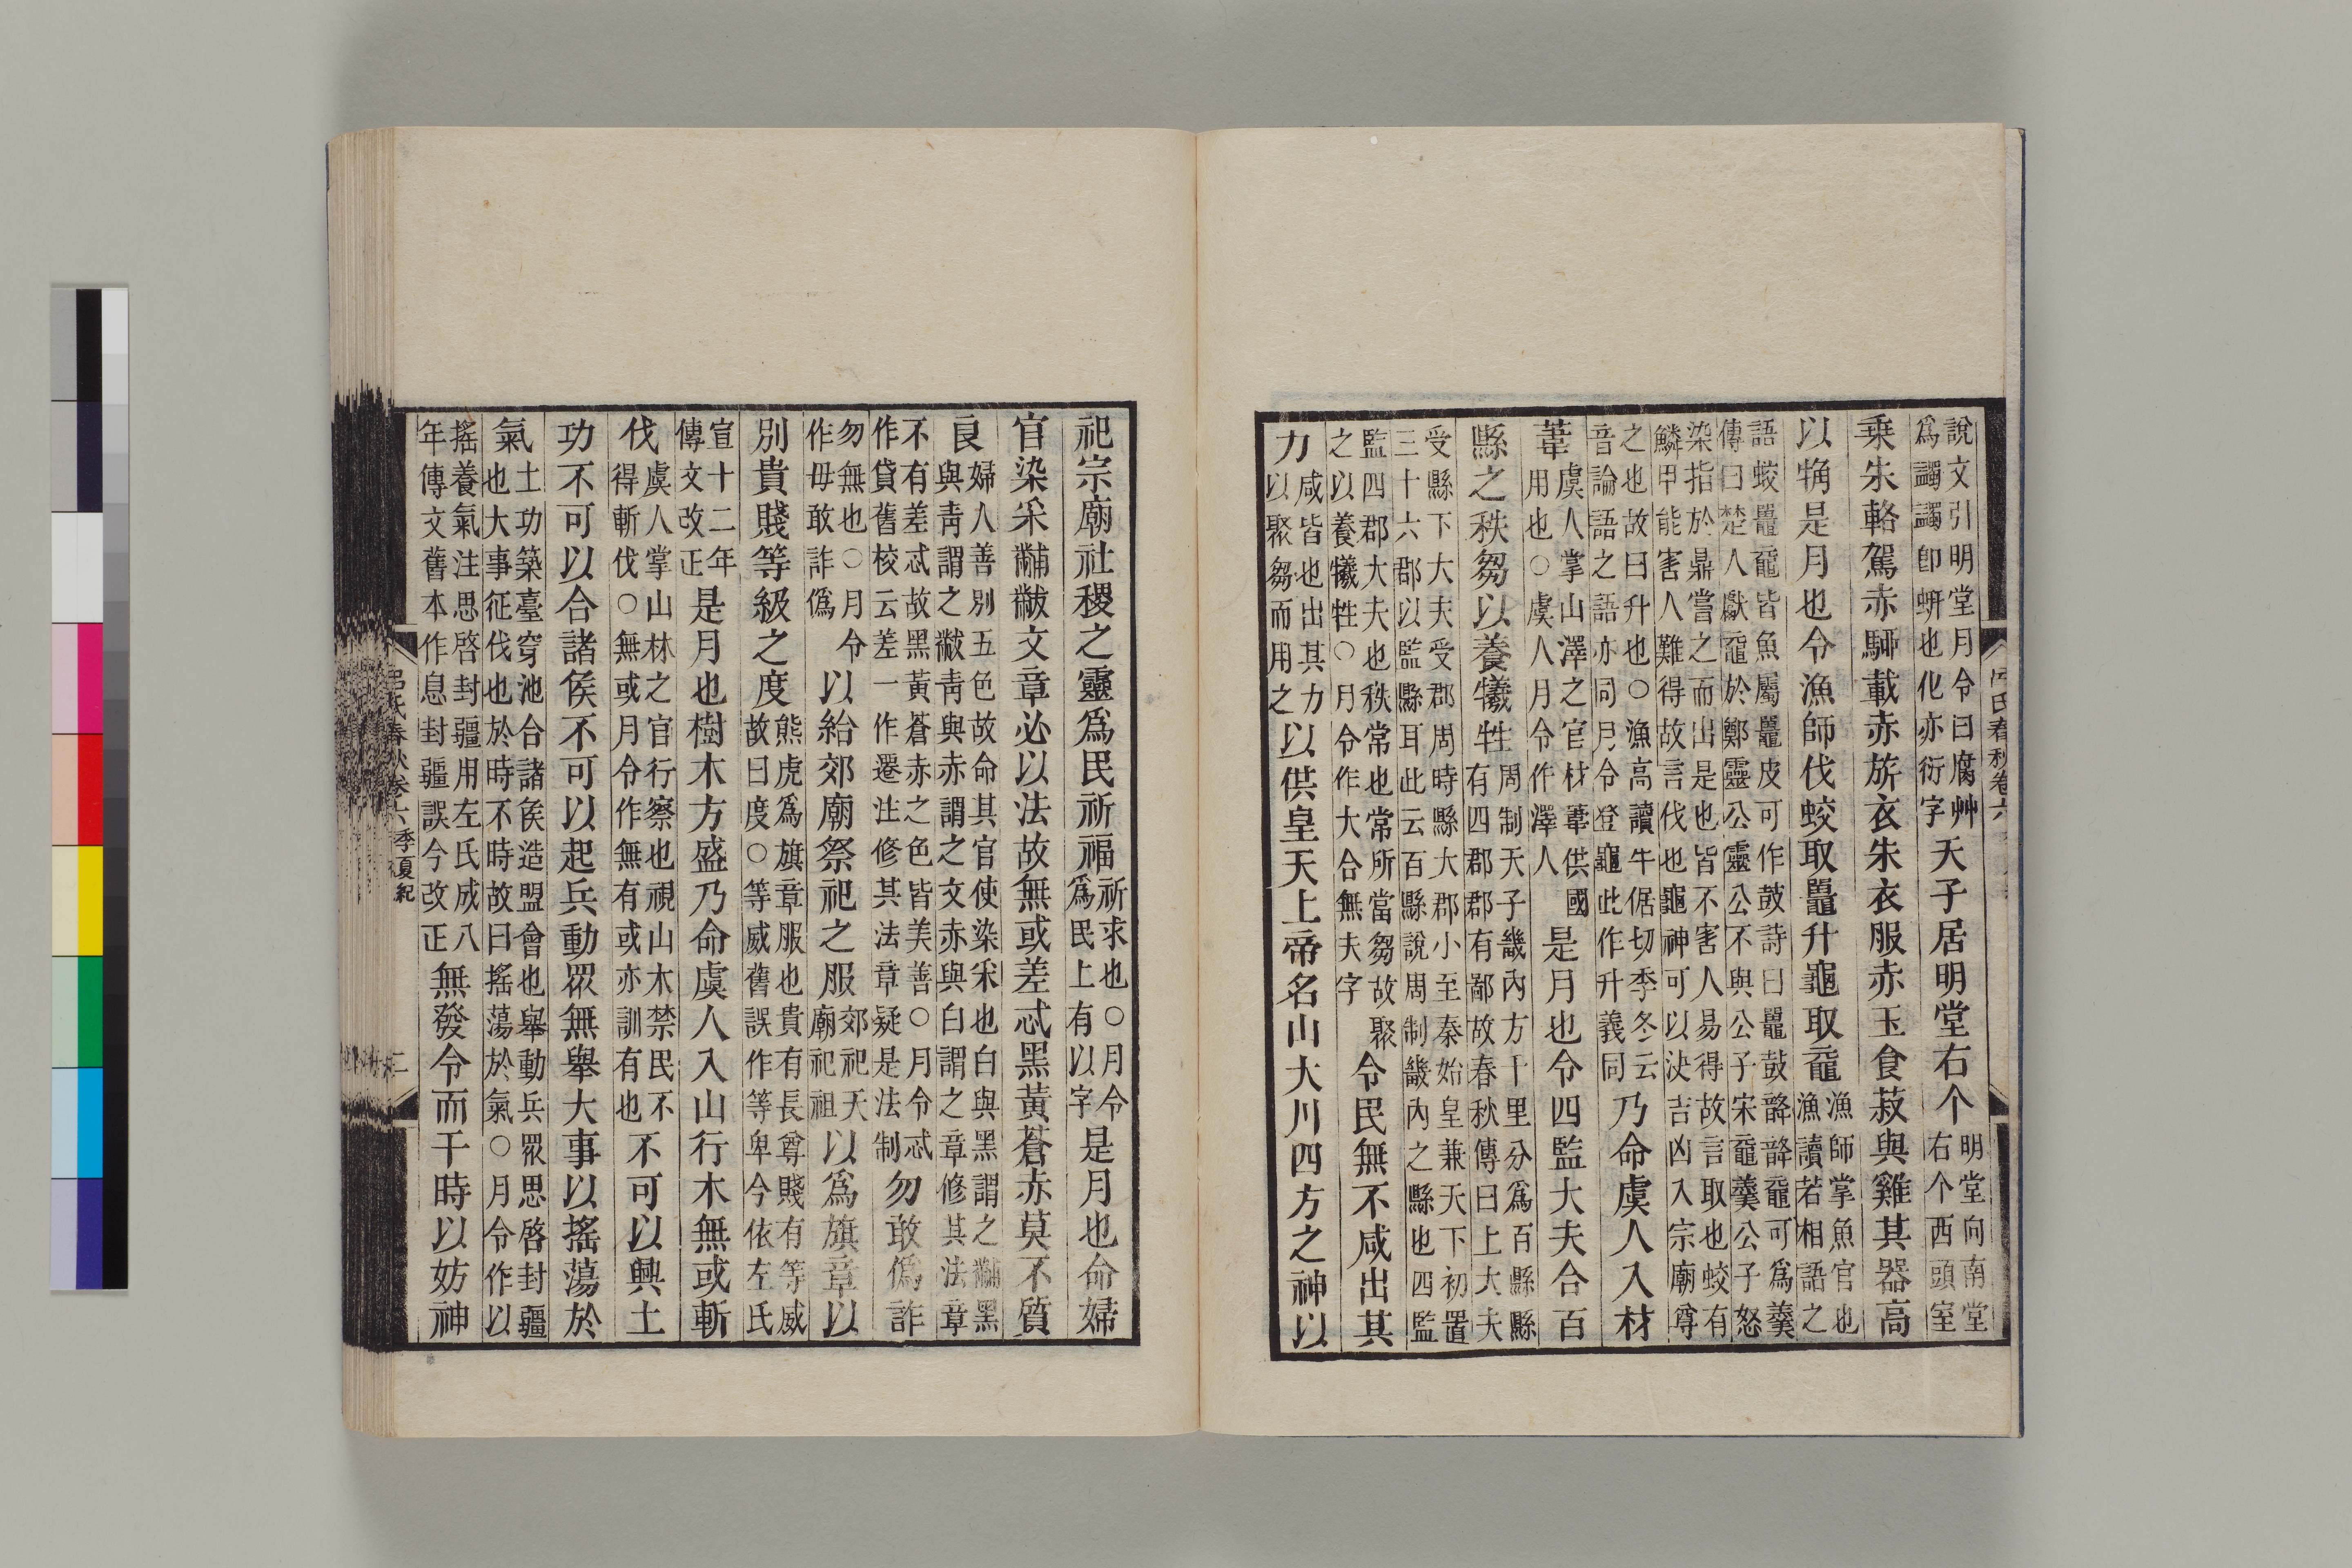 說文引明堂月令曰腐艸爲蠲蠲卽蚈也化亦衍字天子居明堂右个明堂向南堂右个西頭室
乘朱輅駕赤駵載赤旂衣朱衣服赤玉食菽與雞其器高
以觕是月也令漁師伐蛟取鼉升龜取黿漁師掌魚官也漁讀若相語之
語蛟鼉黿皆魚屬鼉皮可作鼓詩曰鼉鼓韸韸黿可爲羹傳曰楚人獻黿於鄭靈公靈公不與公子宋黿羹公子怒
染指於鼎嘗之而出是也皆不害人易得故言取也蛟有鱗甲能害人難得故言伐也龜神可以決吉凶入宗廟尊
之也故曰升也○漁高讀牛倨切季冬云音論語之語亦同月令登龜此作升義同乃命虞人入材
葦虞人掌山澤之官材葦供國用也○虞人月令作澤人是月也令四監大夫合百
縣之秩芻以養犧牲周制天子畿內方千里分爲百縣縣有四郡郡有鄙故春秋傳曰上大夫
受縣下大夫受郡周時縣大郡小至秦始皇兼天下初置三十六郡以監縣耳此云百縣說周制畿內之縣也四監
監四郡大夫也秩常也常所當芻故聚之以養犧牲○月令作大合無夫字令民無不咸出其
力咸皆也出其力以聚芻而用之以供皇天上帝名山大川四方之神以
祀宗廟社稷之靈爲民祈福祈求也○月令爲民上有以字是月也命婦
官染采黼黻文章必以法故無或差忒黑黃蒼赤莫不質
良婦人善別五色故命其官使染采也白與黑謂之黼黑與靑謂之黻靑與赤謂之文赤與白謂之章修其法章
不有差忒故黑黃蒼赤之色皆美善○月令忒作貸舊校云差一作遷注修其法章疑是法制勿敢僞詐
勿無也○月令作毋敢詐僞以給郊廟祭祀之服郊祀天廟祀祖以爲旗章以
別貴賤等級之度熊虎爲旗章服也貴有長尊賤有等威故曰度○等威舊誤作等卑今依左氏
宣十二年傳文改正是月也樹木方盛乃命虞人入山行木無或斬
伐虞人掌山林之官行察也視山木禁民不得斬伐○無或月令作無有或亦訓有也不可以興土
功不可以合諸侯不可以起兵動眾無舉大事以搖蕩於
氣土功築臺穿池合諸侯造盟會也舉動兵眾思啓封疆也大事征伐也於時不時故曰搖蕩於氣○月令作以
搖養氣注思啓封疆用左氏成八年傳文舊本作息封疆誤今改正無發令而干時以妨神
呂氏春秋卷六 季夏紀 二